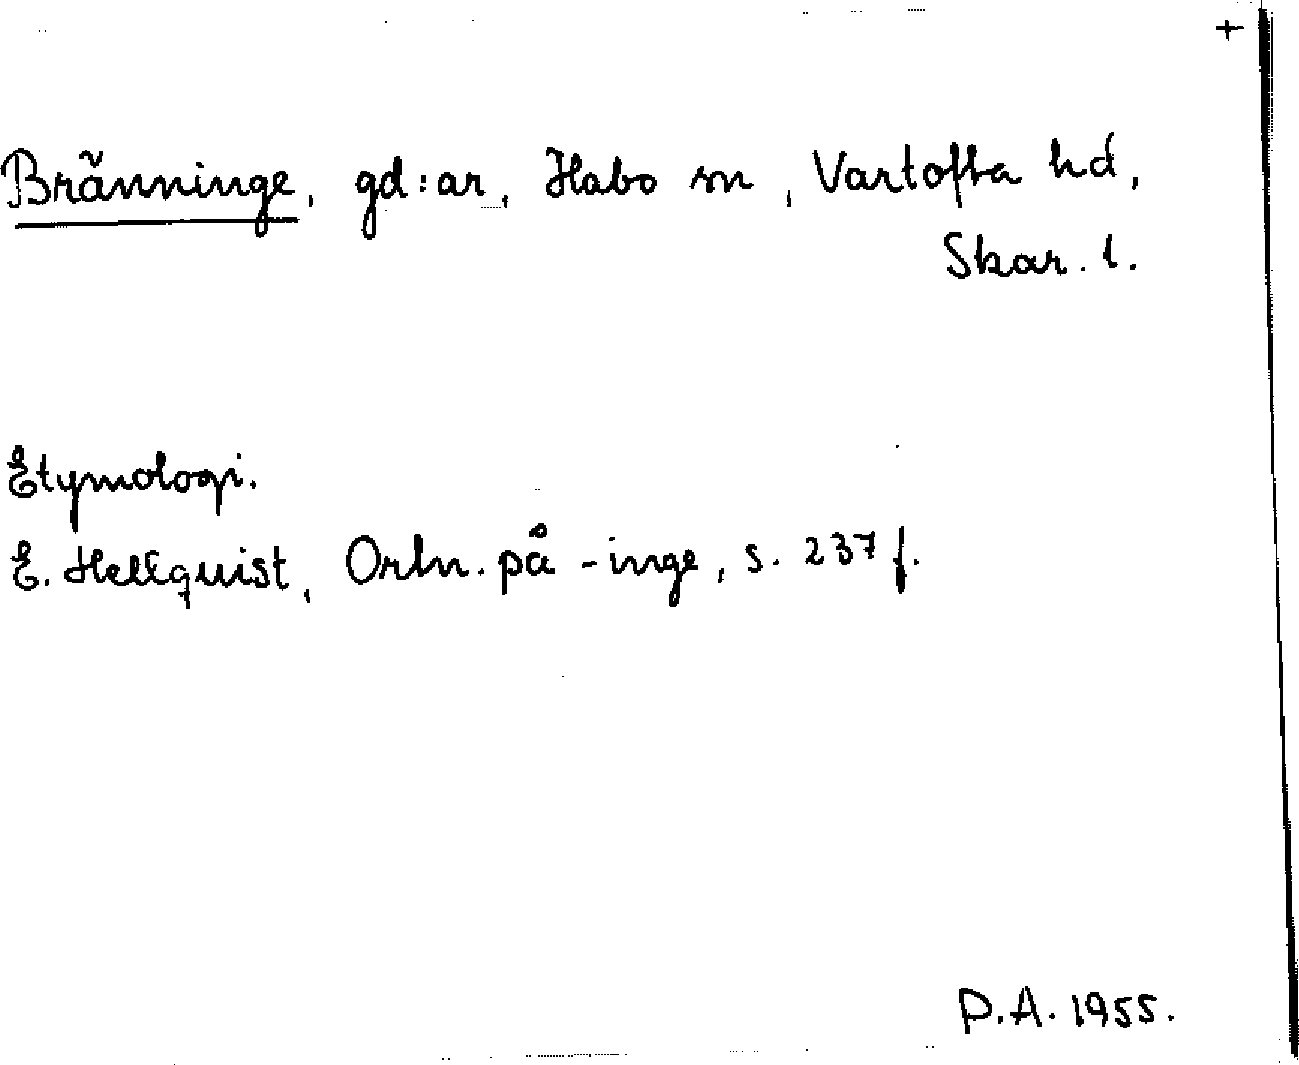 +
Bränninge, gd:ar, Habo sn, Vartofta hd,
Skar. l.
Etymologi.
E. Hellquist, Ortn. på -inge, s. 237 f.
P.A. 1955.